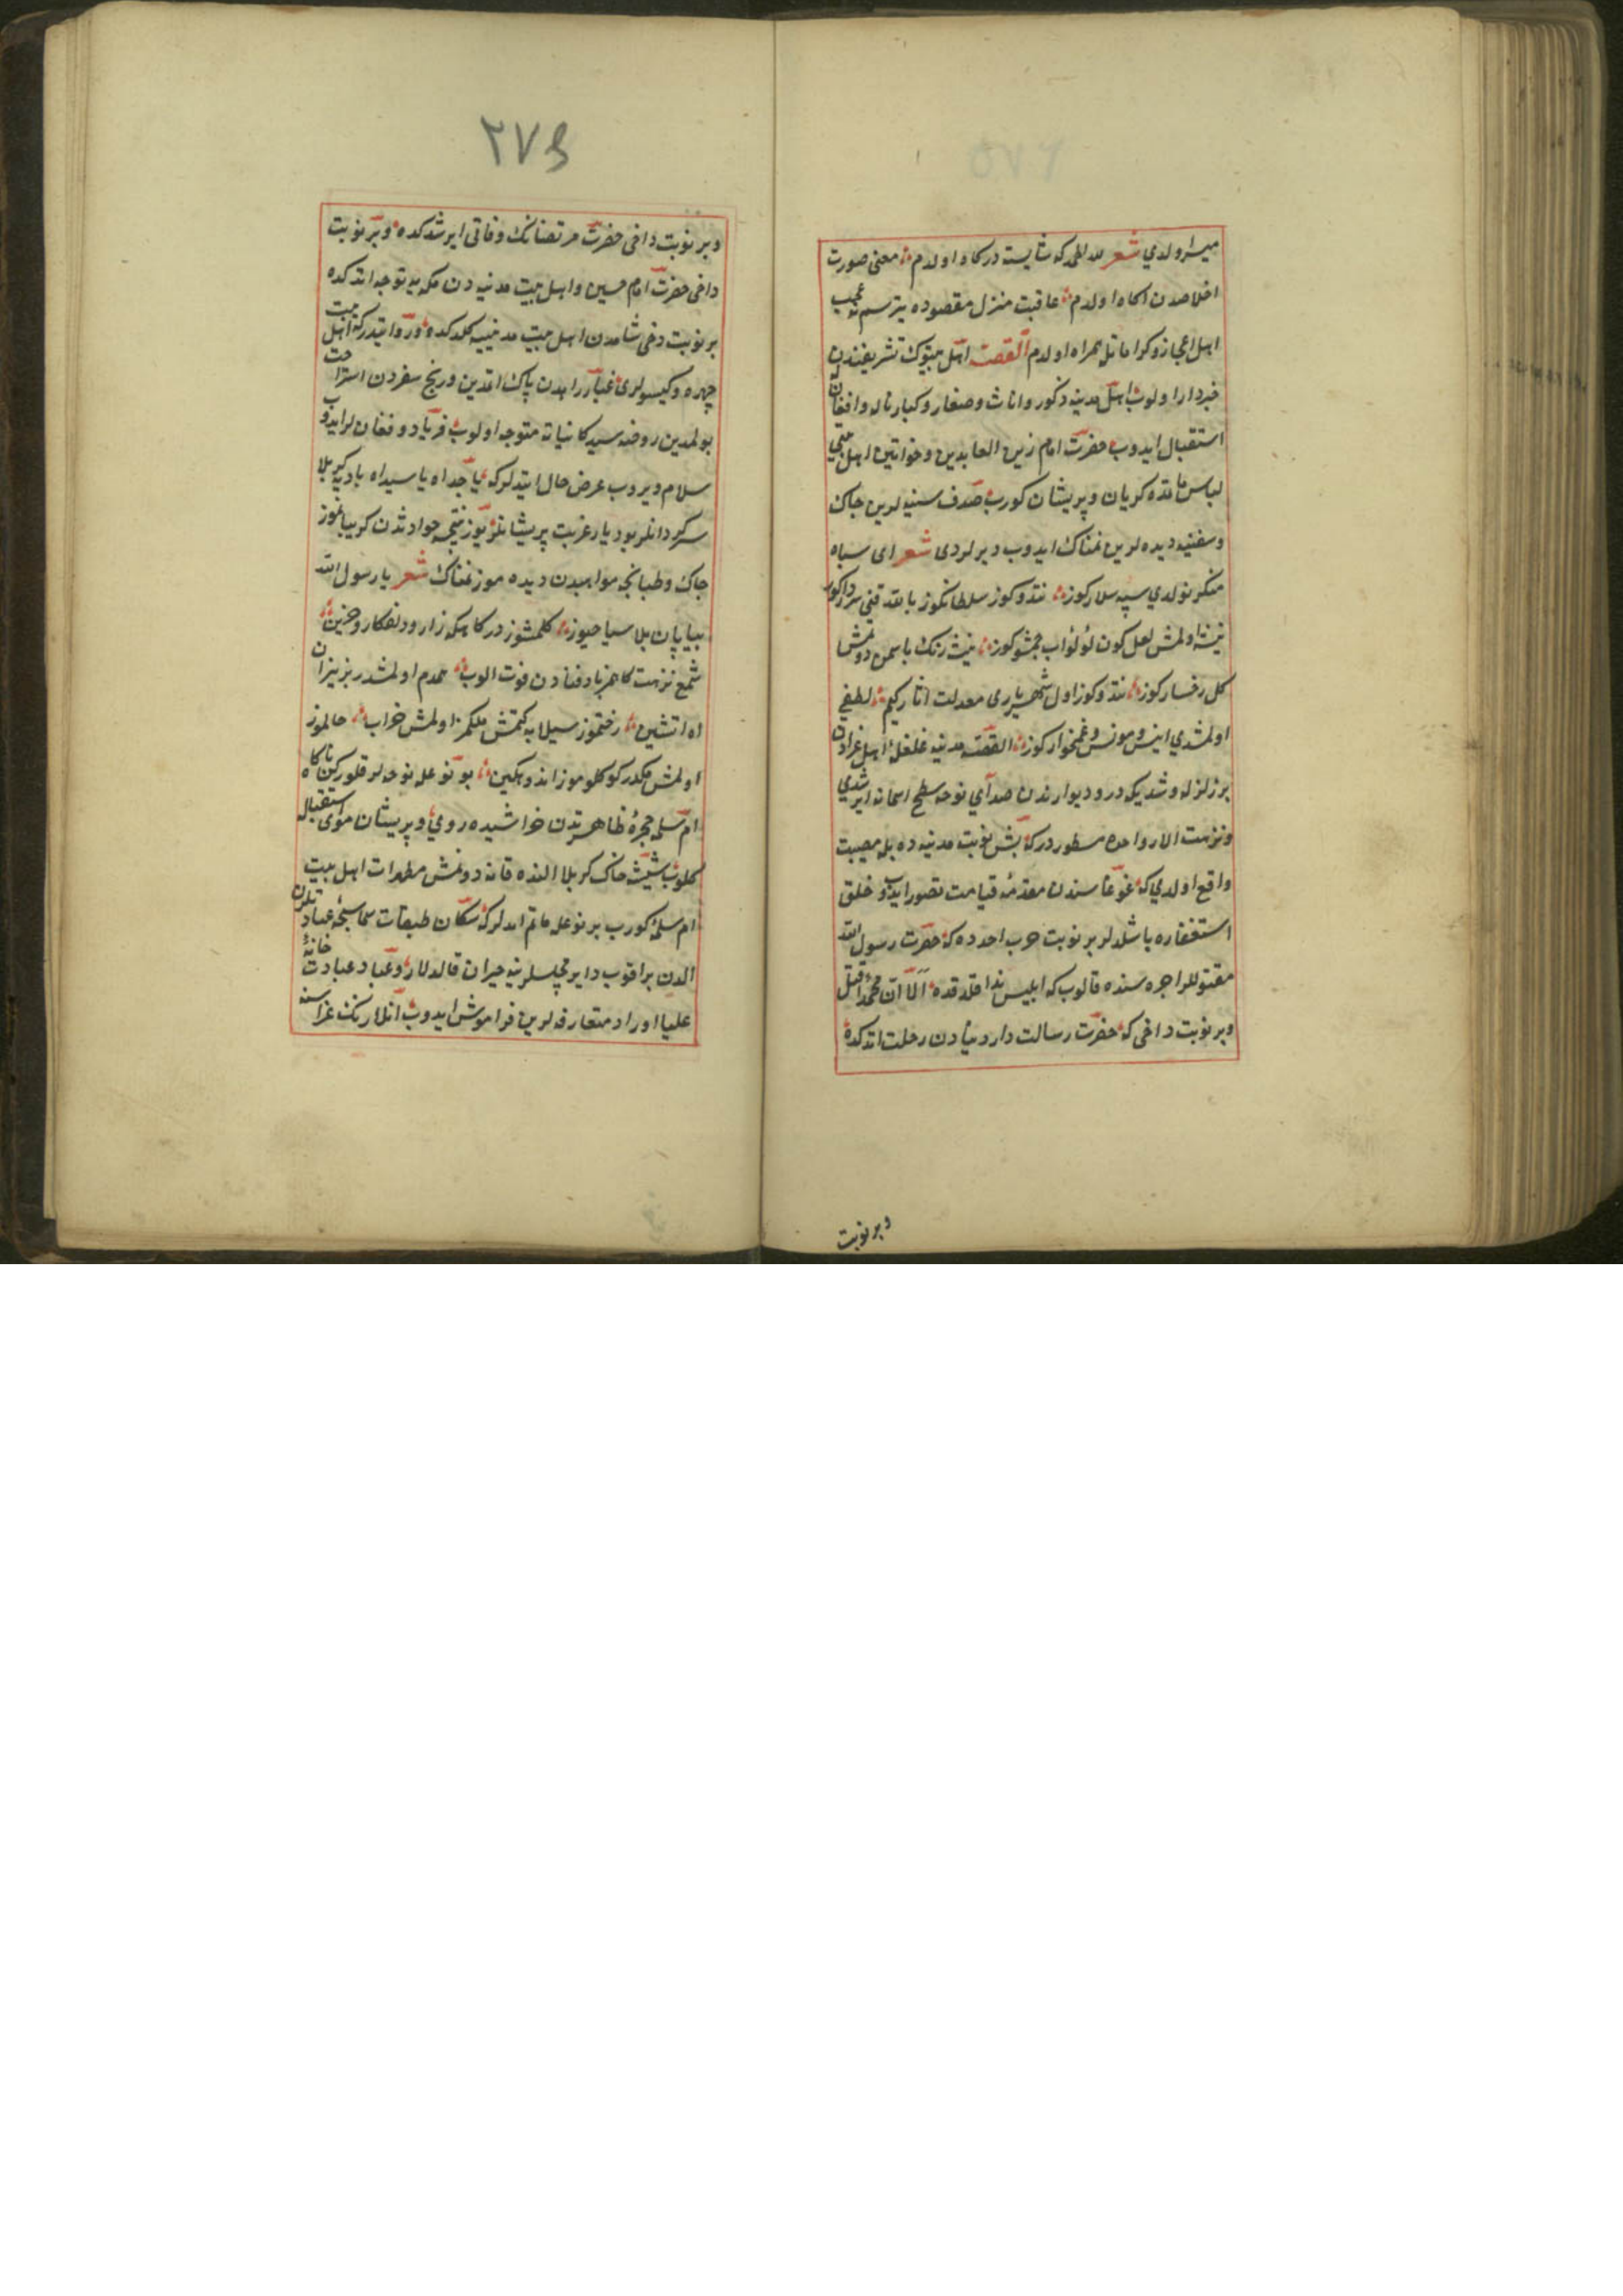 ميسر اولدي شعر لله الحمد كه شايسته دركاه اولدم معنى صورت
اخلاصدن اكاه اولدم عاقبت منزل مقصوده يترسم نه عجب
اهل اعجاز و كراماتله همراه اولدم القصه اهل بيتوك تشريفندن
خبردار اولوب اهل مدينه ذكور و اناث و صغار و كبار ناله و افغان
استقبال ايدوب حضرت امام زين العابدين و خواتين اهل بيتي
لباس ماتمده كريان و پريشان كورب صدف سينه لرين چاك
و سفينه ديده لرين نمناك ايدوب ديرلردى شعر اى سپاه
منكر نولدي سپه سلاركوز نتدوكوز سلطانكوز يا قنى سرداركوز
اولمش لعل كون لؤلؤ اب كوز رنك ياسمن دونمش
كل رخساركوز نتدوكوز اول شهريارى معدلت اثار كيم لطفي
اولمشدي انيس و مونس و غمخواركوز القصه مدينه غلغلهٔ اهل عزادن
بر زلزله و شديكه در و ديوارندن صداي نوحه سطح اسمانه ايرشدي
و نزهت الارواحده مسطوردركه بش نوبت مدينه ده بله مصيبت
واقع اولدي كه غوغاسندن مقدمهٔ قيامت تصور ايدوب خلق
استغفاره باشلدلر بر نوبت حرب احدده كه حضرت رسول الله
مقتوللر اجره سنده قالوب كه ابليس ندا قلدقده الا ان محمدا قتل
و بر نوبت داخى كه حضرت رسالت دار دنيادن رحلت اتدكده
و بر نوبت
٢٧٤
و بر نوبت داخى حضرت مرتضانك وفاتى ايرشدكده و بر نوبت
داخى حضرت امام حسين و اهل بيت مدينه دن مكه يه توجه اتدكده
بر نوبت دخى شامدن اهل بيت مدينيه كلدكده و روايتدركه اهل بيت
چهره و كيسولرى غبار راهدن پاك اتمدين و رنج سفردن استراحت
بولمدين روضه سيد كائناته متوجه اولوب فرياد و فغانلر ايدوب
سلام ويروب عرض حال ايتديلر كه يا جداه يا سيداه باديه كربلا
سركردانلريوز ديار غربت پريشانلريوز نتيجه حوادثدن كريبانموز
چاك و طبانجه مواهبدن ديده موز نمناك شعر يا رسول الله
بيابان بلا سياحيوز كلمشوز دركاهكه زار و دلفكار و حزين
شمع نزهت كاهمز باد فنادن فوت الوب همدم اولمشدر بزه نيران
اه اتشين رختموز سيلابه كتمش ملكمز اولمش خراب حالموز
اولمش مكدر كوكلوموز اندوهكين بو نوعله نوحه لر قلوركن ناكاه
ام سلمه حجرهٔ طاهرتدن خراشيده روى و پريشان موى استقباله
كلوب شيشه خاك كربلا النده قانه دونمش مطهرات اهل بيت
ام سلمه كورب بر نوعله ماتم اتديلر كه سكان طبقات سما سبحهٔ عبادتلرن
الدن براقوب داير مجلسلرينه حيران قالديلار و عباد عبادت خانهٔ
عليا اوراد متعارفه لرين فراموش ايدوب انلارنك عزاسنه